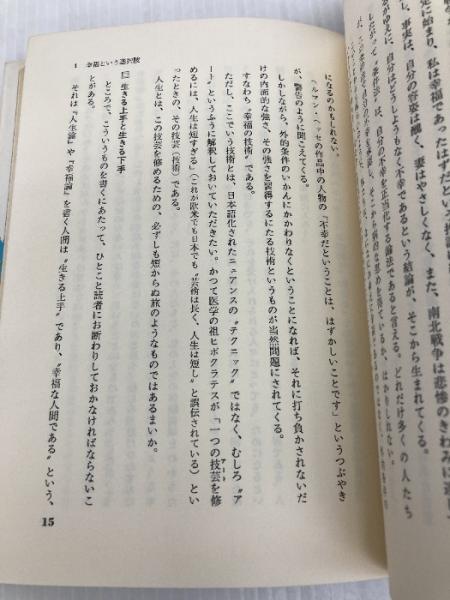 先に始まり、私は幸福であったはずだという
、事実は、自分の容姿は醜く、妻はやさしくなく、また、南北戦争は悲惨のきわみに達し
がゆえに、自分はどうしようもなく不幸であるという結論が、そこから生まれてくる。
自分の不幸を正当化する論法であると言える。どれだけ多くの人たち
1 幸福という選択肢
になるのかもしれない。
ヘルマン・ヘッセの作品中の人物の『不幸だということは、はずかしいことです』というつぶやき
が、警告のように聞こえてくる。
しかしながら、外的条件のいかんにかかわりなくということになれば、それに打ち負かされないだ
けの内面的な強さ、その強さを習得するにたる技術というものが当然問題にされてくる。
すなわち〝幸福の技術〟である。
ただし、ここでいう技術とは、日本語化されたニュアンスの〝テクニック〟ではなく、むしろ〝ア
ート〟というふうに解釈しておいていただきたい。かつて医学の祖ヒポクラテスが「一つの技芸を修
アート
めるには、人生は短すぎる」(これが欧米でも日本でも〝芸術は長く、人生は短し〟と誤伝されている)とい
ったときの、その技芸(技術)である。
人生とは、この技芸を修めるための、必ずしも短からぬ旅のようなものではあるまいか。
生きる上手と生きる下手
ところで、こういうものを書くにあたって、ひとこと読者にお断わりしておかなければならないこ
とがある。
それは『人生論』や『幸福論』を書く人間は〝生きる上手〟であり、〝幸福な人間である〟という、
15